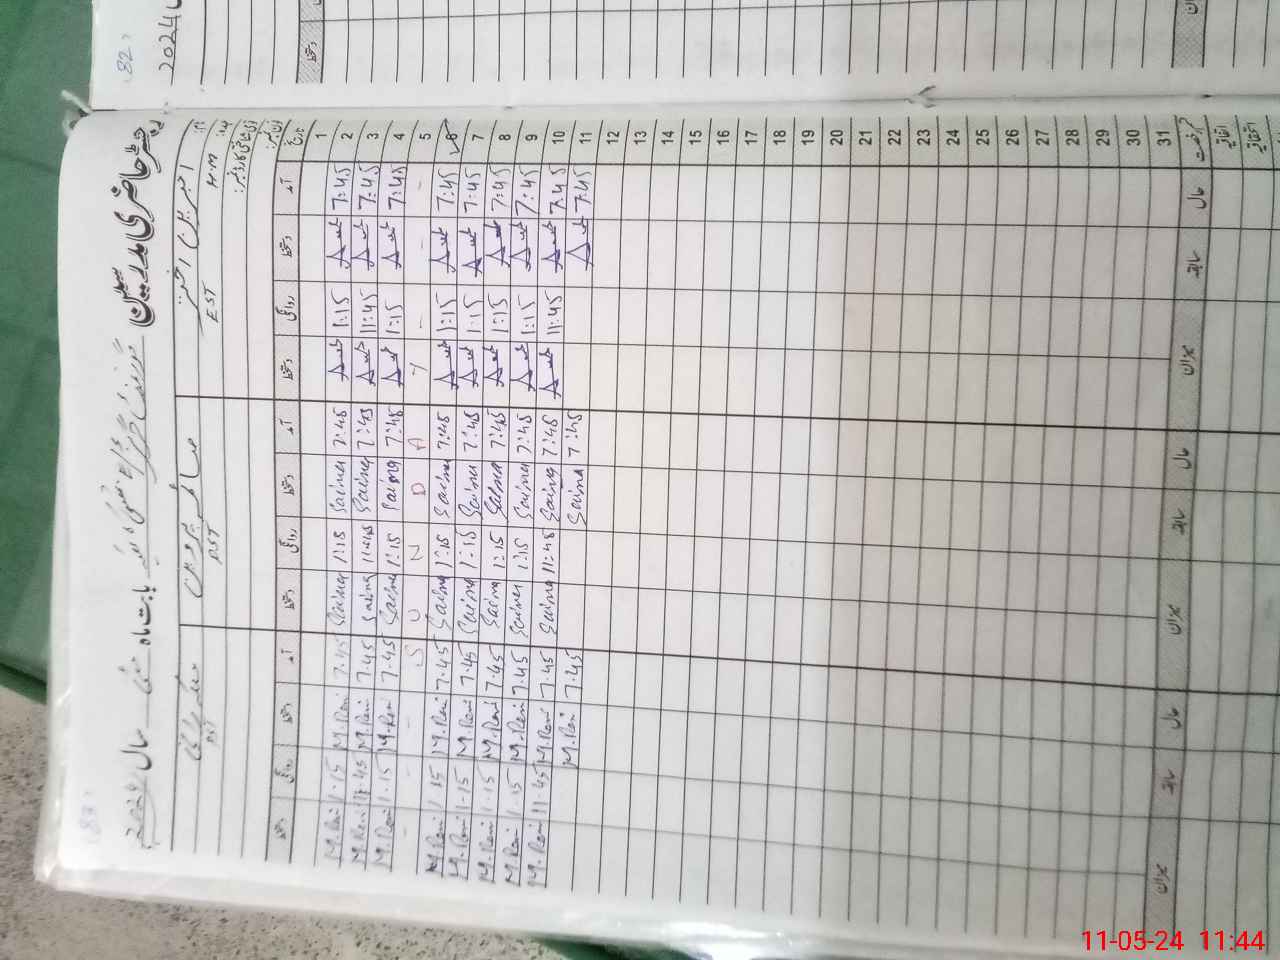 83
رجسٹر حاضری مدرسین
بابت ماہ مئی سال 2024
نام: عنبرین اختر
صائمہ پروین
ملکہ رانی
عہدہ: H.M
EST
PST
PST
شناختی کارڈ نمبر:
تاریخ آمد دستخط روانگی دستخط آمد دستخط روانگی دستخط آمد دستخط روانگی دستخط
1
2 7:45 1:15 7:45 Saima 1:15 Saima 7.45 M.Rani 1.15 M.Rani
3 7:45 11:45 7:45 Saima 11:45 Saima 7.45 M.Rani 11.45 M.Rani
4 7:45 1:15 7:45 Saima 1:15 Saima 7.45 M.Rani 1.15 M.Rani
5 - - - / A D N U S - - -
6 7:45 1:15 7:45 Saima 1:15 Saima 7.45 M.Rani 1.15 M.Rani
7 7:45 1:15 7:45 Saima 1:15 Saima 7.45 M.Rani 1.15 M.Rani
8 7:45 1:15 7:45 Saima 1:15 Saima 7.45 M.Rani 1.15 M.Rani
9 7:45 1:15 7:45 Saima 1:15 Saima 7.45 M.Rani 1.15 M.Rani
10 7:45 11:45 7:45 Saima 11:45 Saima 7.45 M.Rani 11.45 M.Rani
11 7:45 7:45 Saima 7.45 M.Rani
12
13
14
15
16
17
18
19
20
21
22
23
24
25
26
27
28
29
30
31
قسم رخصت حال سابقہ میزان حال سابقہ میزان حال سابقہ میزان
اتفاقیہ
استحقاقیہ
82
2024
دستخط
11-05-24 11:44